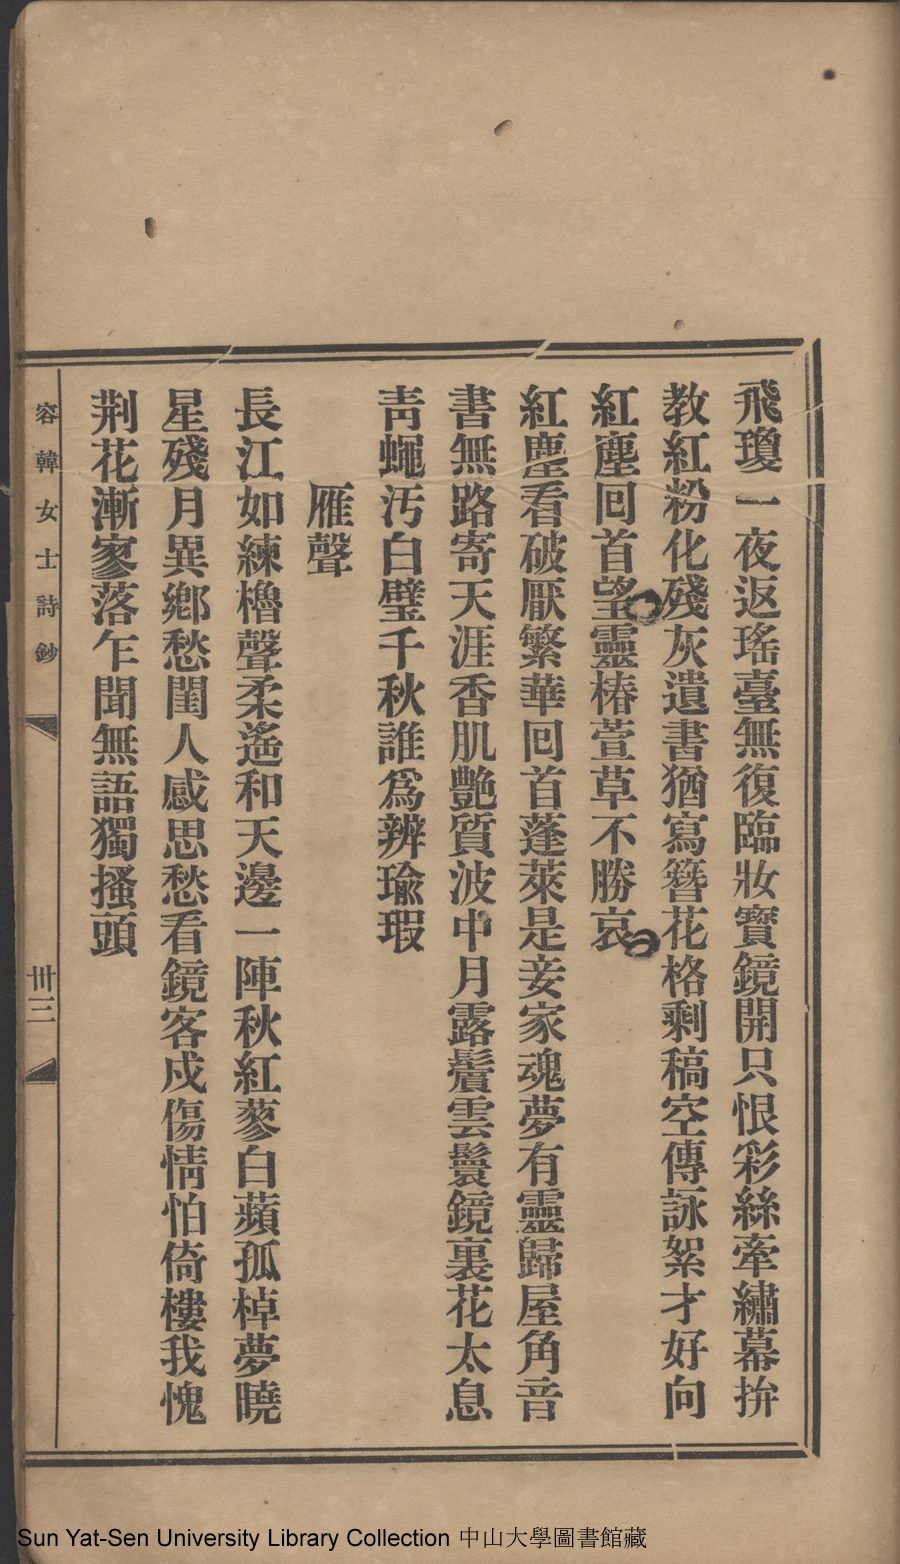 飛瓊一夜返瑤臺無復臨妝寶鏡開只恨彩絲牽繡幕拚
教紅粉化殘灰遺書猶寫簪花格剩稿空傳詠絮才好向
紅塵回首望靈椿萱草不勝哀
紅塵看破厭繁華回首蓬萊是妾家魂夢有靈歸屋角音
書無路寄天涯香肌艷質波中月露鬢雲鬟鏡裏花太息
靑蠅汚白璧千秋誰爲辨瑜瑕
雁聲
長江如練櫓聲柔遙和天邊一陣秋紅蓼白蘋孤棹夢曉
星殘月異鄕愁閨人感思愁看鏡客戍傷情怕倚樓我愧
荆花漸寥落乍聞無語獨搔頭
容韓女士詩鈔
卅三
Sun Yat-Sen University Library Collection 中山大學圖書館藏